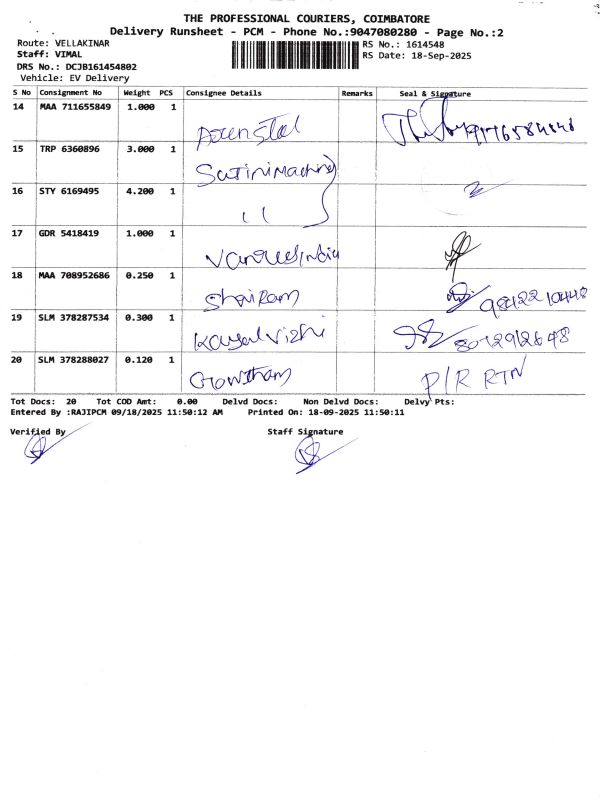 THE PROFESSIONAL COURIERS, COIMBATORE
Delivery Runsheet - PCM - Phone No.:9047080280 - Page No.:2
Route: VELLAKINAR
RS No.: 1614548
Staff: VIMAL
RS Date: 18-Sep-2025
DRS No.: DCJB161454802
Vehicle: EV Delivery
S No Consignment No Weight PCS Consignee Details Remarks Seal & Signature
14 MAA 711655849 1.000 1
15 TRP 6360896 3.000 1
16 STY 6169495 4.200 1 11
17 GDR 5418419 1.000 1
18 MAA 708952686 0.250 1 Shairam
19 SLM 378287534 0.300 1 Kayalvizhi
20 SLM 378288027 0.120 1 Gowtham P/R RTN
Tot Docs: 20 Tot COD Amt: 0.00 Delvd Docs: Non Delvd Docs: Delvy Pts:
Entered By :RAJIPCM 09/18/2025 11:50:12 AM Printed On: 18-09-2025 11:50:11
Verified By Staff Signature